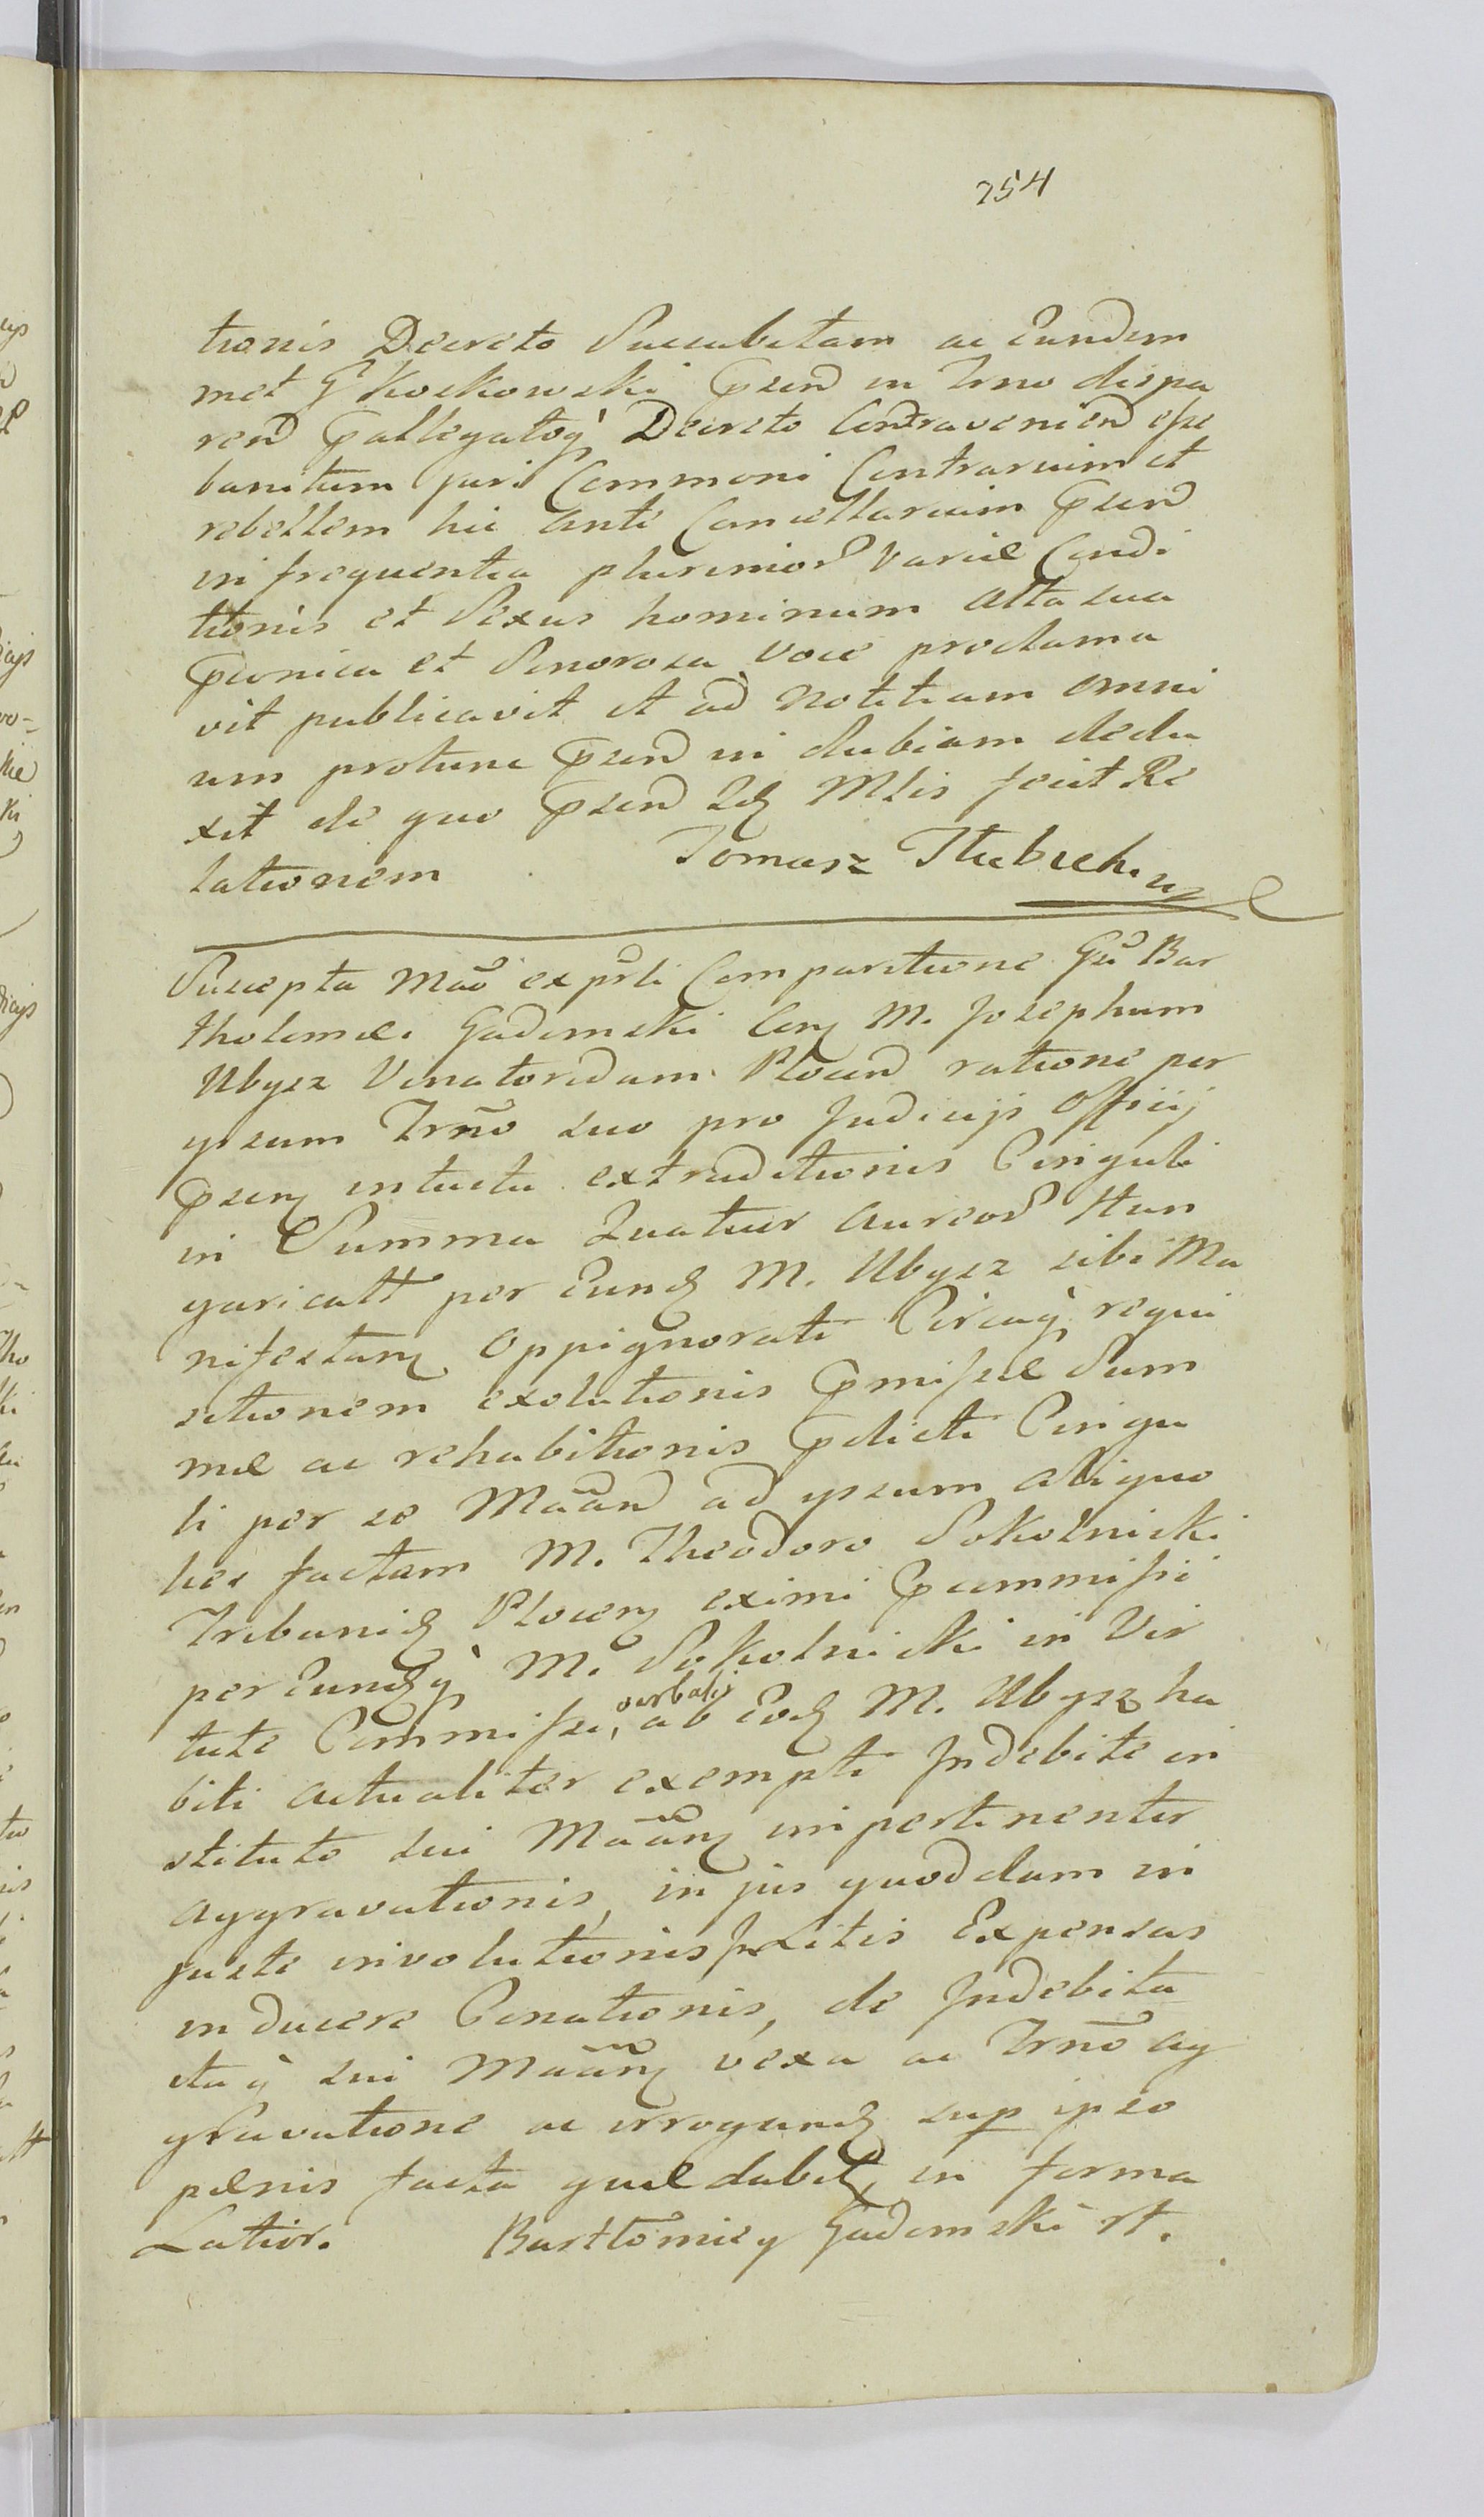 254
tionis Decreto Succubitam ac Eundem
met G Koskowski pnsend in Trno dispa
rend pallegatoq̀ Decreto Contraveniend esse
banitum juri Commoni Contrarium et
rebellem hic ante Cancellariam pnsend
in frequentia plurimor Variæ Condi
tionis et Sexus hominum alta sua
pconica et Sonorosa voce proclama
vit publicavit et ad Notitiam omni
um protunc pnsend in dubiam dedu
xit de quo pnsend Idq Mlis fecit Re
lationem
Suscepta Mao ex prti Comparitione Gsi Bar
tholomæi Gadomski Conq M. Josephum
Ubysz Venatoridam Plocend ratione per
ipsum Trño suo pro Judicijs Officij
psenq intuitu extraditionis Cinguli
in Summa Quatuor aureor Hun
garicalt per Eundq M. Ubysz sibi Ma
nifestanq oppignorati Circaq̀ requi
sitionem exolutionis pmissæ Sum
mæ ac rehabitionis pdicti Cingu
li per se Mãand ad ipsum aliquo
ties factam M. Theodoro Sokolnicki
Tribunidq Plocenq eximi pcommissi
per Eundq̀ M. Sokolnicki in Vir
tute Commissi, verbalis ab Eodq M. Ubysz ha
biti actualiter exempti Indebite in
stituto sui Mãanq impertinenter
aggravationis, in jus quoddam in
juste involutionis Litis Expensas
inducere Conationis, de Indebita
itaq̀ sui Mãanq vexa ac Trño ag
gravatione ac irrogandq sup ipso
pænis facta quæ dabit, in forma
Latior. Bartłomiey Gadomski rt.